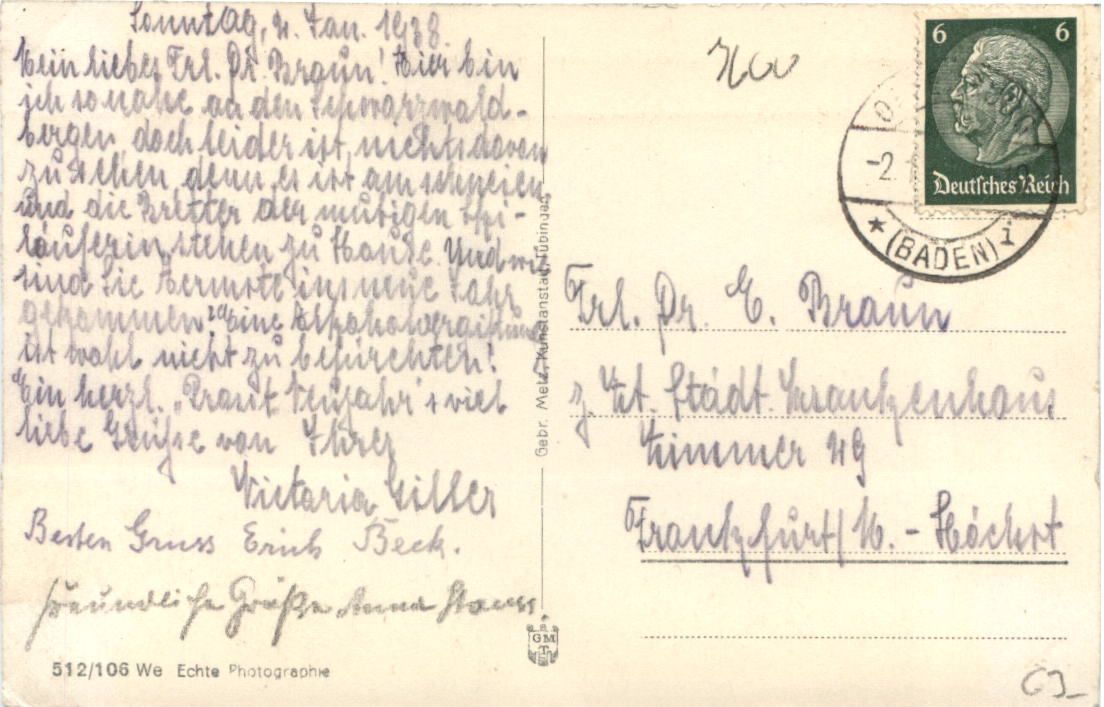 Sonntag, 2. Jan. 1938.
Mein liebes Frl. Dr. Braun! Hier bin
ich so nahe an den Schwarzwald-
bergen, doch leider ist nichts davon
zu sehen denn es ist am schneien
und die Bretter der mutigen Ski-
läuferin stehen zu Hause. Und wie
sind Sie ins neue Jahr
gekommen? Eine
ist wohl nicht zu befürchten!
Ein herzl. „Prosit Neujahr" + viel
liebe Grüsse von Ihrer
Victoria
Besten Gruss Erich Beck.
freundliche Grüße Anna
512/106 We Echte Photographie
Gebr. Metz, Kunstanstalt, Tübingen
GMT
6 6
Deutsches Reich
-2.
(BADEN)
Frl. Dr. E. Braun
z. Zt. Städt. Krankenhaus
Zimmer 29
Frankfurt/M. - Höchst